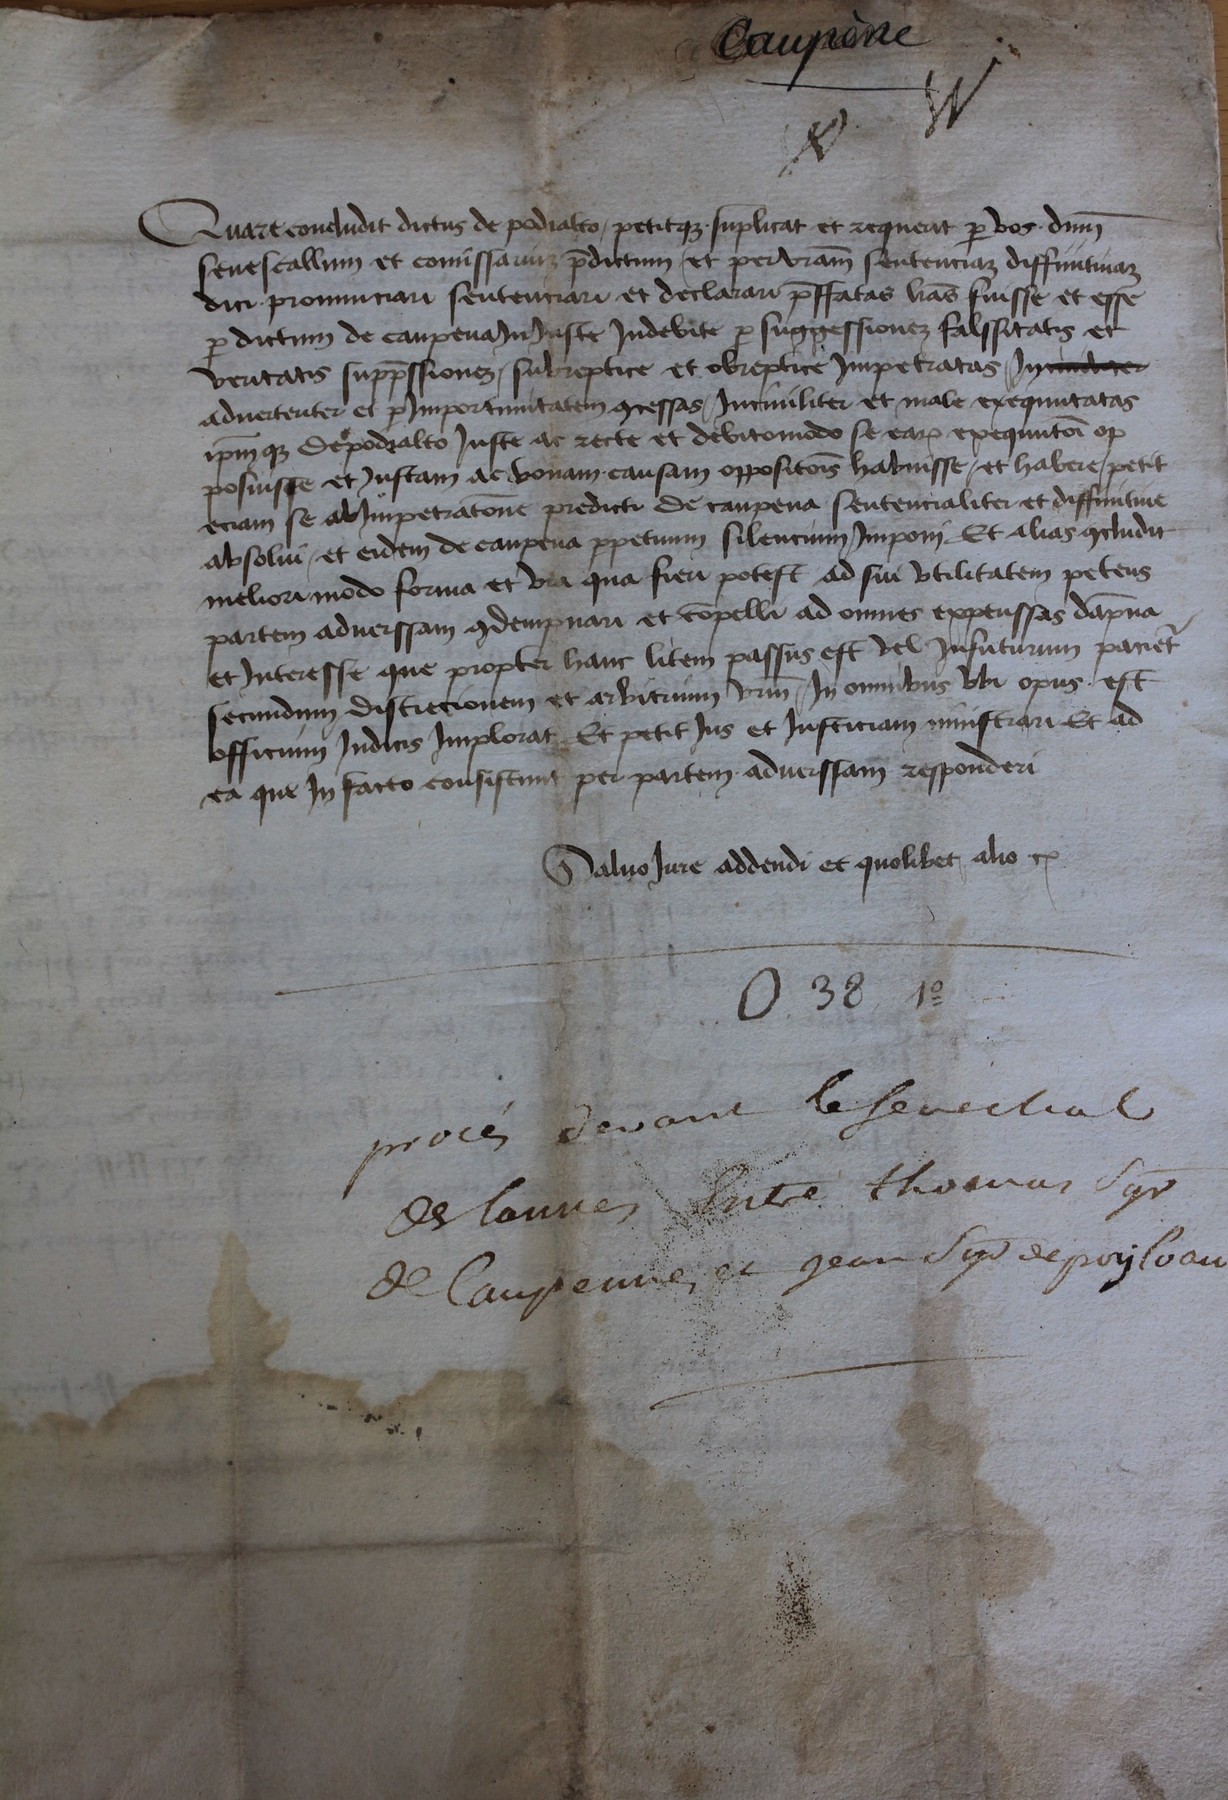 Caupène
Quare concludit dictus de podialto / petitqz suplicat et requerit p vos dnm̄
senescallum et comissariuz p̄dictum / et per vram̄ sentenciaz diffinitiuaz
dici pronunciari sentenciari et declarari p̄ffatas lr̄as fuisse et esse
p dictum de caupena In Iuste Indebite p suggessionez falssitatis et
veritatis supp̄ssionez / subreptice et obreptice Impetratas / In
aduertenter et p Importunitatem ꝯcessas / Inciuiliter et male exequutatas
ip̄mqz de podialto Iuste ac recte et debitomodo se earꝫ exequutoī op
posuisse et Iustam ac bonam causam oppositoīs habuisse / et habere / petit
eciam se ab Impetratōne predicti de caupena sentencialiter et diffinitiue
absolui / et eidem de caupena ppetuum silencium Imponi Et alias ꝯcludit
meliori modo forma et via qua fieri potest ad sui vtilitatem petens
partem aduerssam ꝯdempnari et cōpelli ad omnes exppenssas dāpna
et Interesse que propter hanc litem passus est vel Infuturum paciet̄
secundum discrecionem et arbitrium vrm̄ / In omnibus vbi opus est
officium Iudicis Implorat Et petit Ius et Iusticiam ministrari Et ad
ea que In facto consistunt per partem aduerssam respponderi
Saluo Iure addendi et quolibet alio
O. 38 1º
procés devant le senechal
de lannes Entre thomas Sgr
de Caupenne, et jean Sgr de poyloau